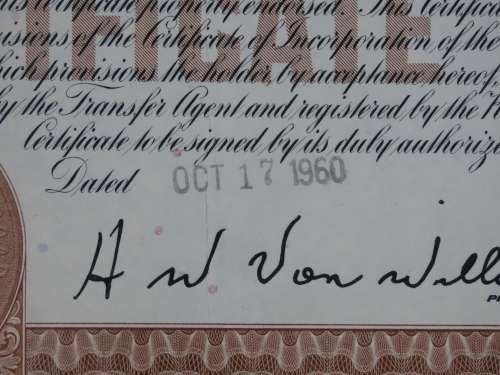 certificate properly endorsed. This Certific
isions of the Certificate of Incorporation of the
IFICATE
ich provisions the holder, by acceptance hereof
by the Transfer Agent and registered by the R
Certificate to be signed by its duly authoriz
Dated OCT 17 1960
H W Von Will